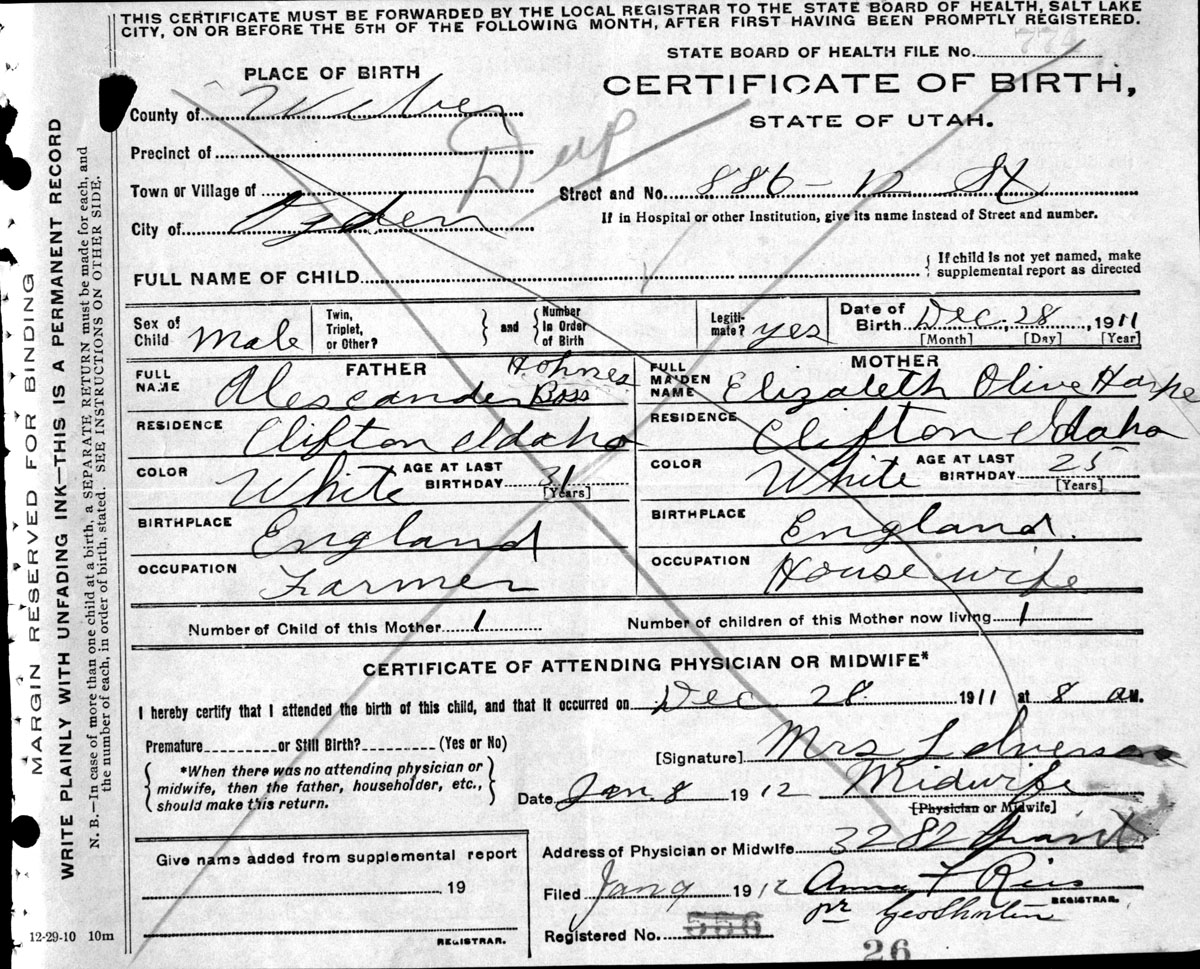 THIS CERTIFICATE MUST BE FORWARDED BY THE LOCAL REGISTRAR TO THE STATE BOARD OF HEALTH, SALT LAKE
CITY, ON OR BEFORE THE 5TH OF THE FOLLOWING MONTH, AFTER FIRST HAVING BEEN PROMPTLY REGISTERED.
STATE BOARD OF HEALTH FILE No.
PLACE OF BIRTH
CERTIFICATE OF BIRTH,
STATE OF UTAH.
County of Weber
Dup
Precinct of
Town or Village of
Street and No. 886 - 12 St
City of Ogden
If in Hospital or other Institution, give its name instead of Street and number.
FULL NAME OF CHILD
{ If child is not yet named, make
supplemental report as directed
Sex of Child Male
Twin, Triplet, or Other? } and { Number in Order of Birth
Legiti-mate? yes
Date of Birth Dec. 28, 1911
[Month] [Day] [Year]
FATHER
FULL NAME Alexander Ross
MOTHER
FULL MAIDEN NAME Elizabeth Olive
RESIDENCE Clifton Idaho
RESIDENCE Clifton Idaho
COLOR White AGE AT LAST BIRTHDAY 31 [Years]
COLOR White AGE AT LAST BIRTHDAY 25 [Years]
BIRTHPLACE England
BIRTHPLACE England.
OCCUPATION Farmer
OCCUPATION House wife
Number of Child of this Mother 1
Number of children of this Mother now living 1
CERTIFICATE OF ATTENDING PHYSICIAN OR MIDWIFE*
I hereby certify that I attended the birth of this child, and that it occurred on Dec 28. 1911 at 8 a M.
Premature or Still Birth? (Yes or No)
[Signature] Mrs
{ *When there was no attending physician or
midwife, then the father, householder, etc.,
should make this return. }
Date Jan. 8 1912 Midwife
[Physician or Midwife]
Address of Physician or Midwife 3282 Grant
Give name added from supplemental report
19
REGISTRAR.
Filed Jan 9 1912 Anna F
REGISTRAR.
pr Geo
Registered No. 556
26
12-29-10 10m
MARGIN RESERVED FOR BINDING
WRITE PLAINLY WITH UNFADING INK—THIS IS A PERMANENT RECORD
N. B.—In case of more than one child at a birth, a SEPARATE RETURN must be made for each, and
the number of each, in order of birth, stated. SEE INSTRUCTIONS ON OTHER SIDE.